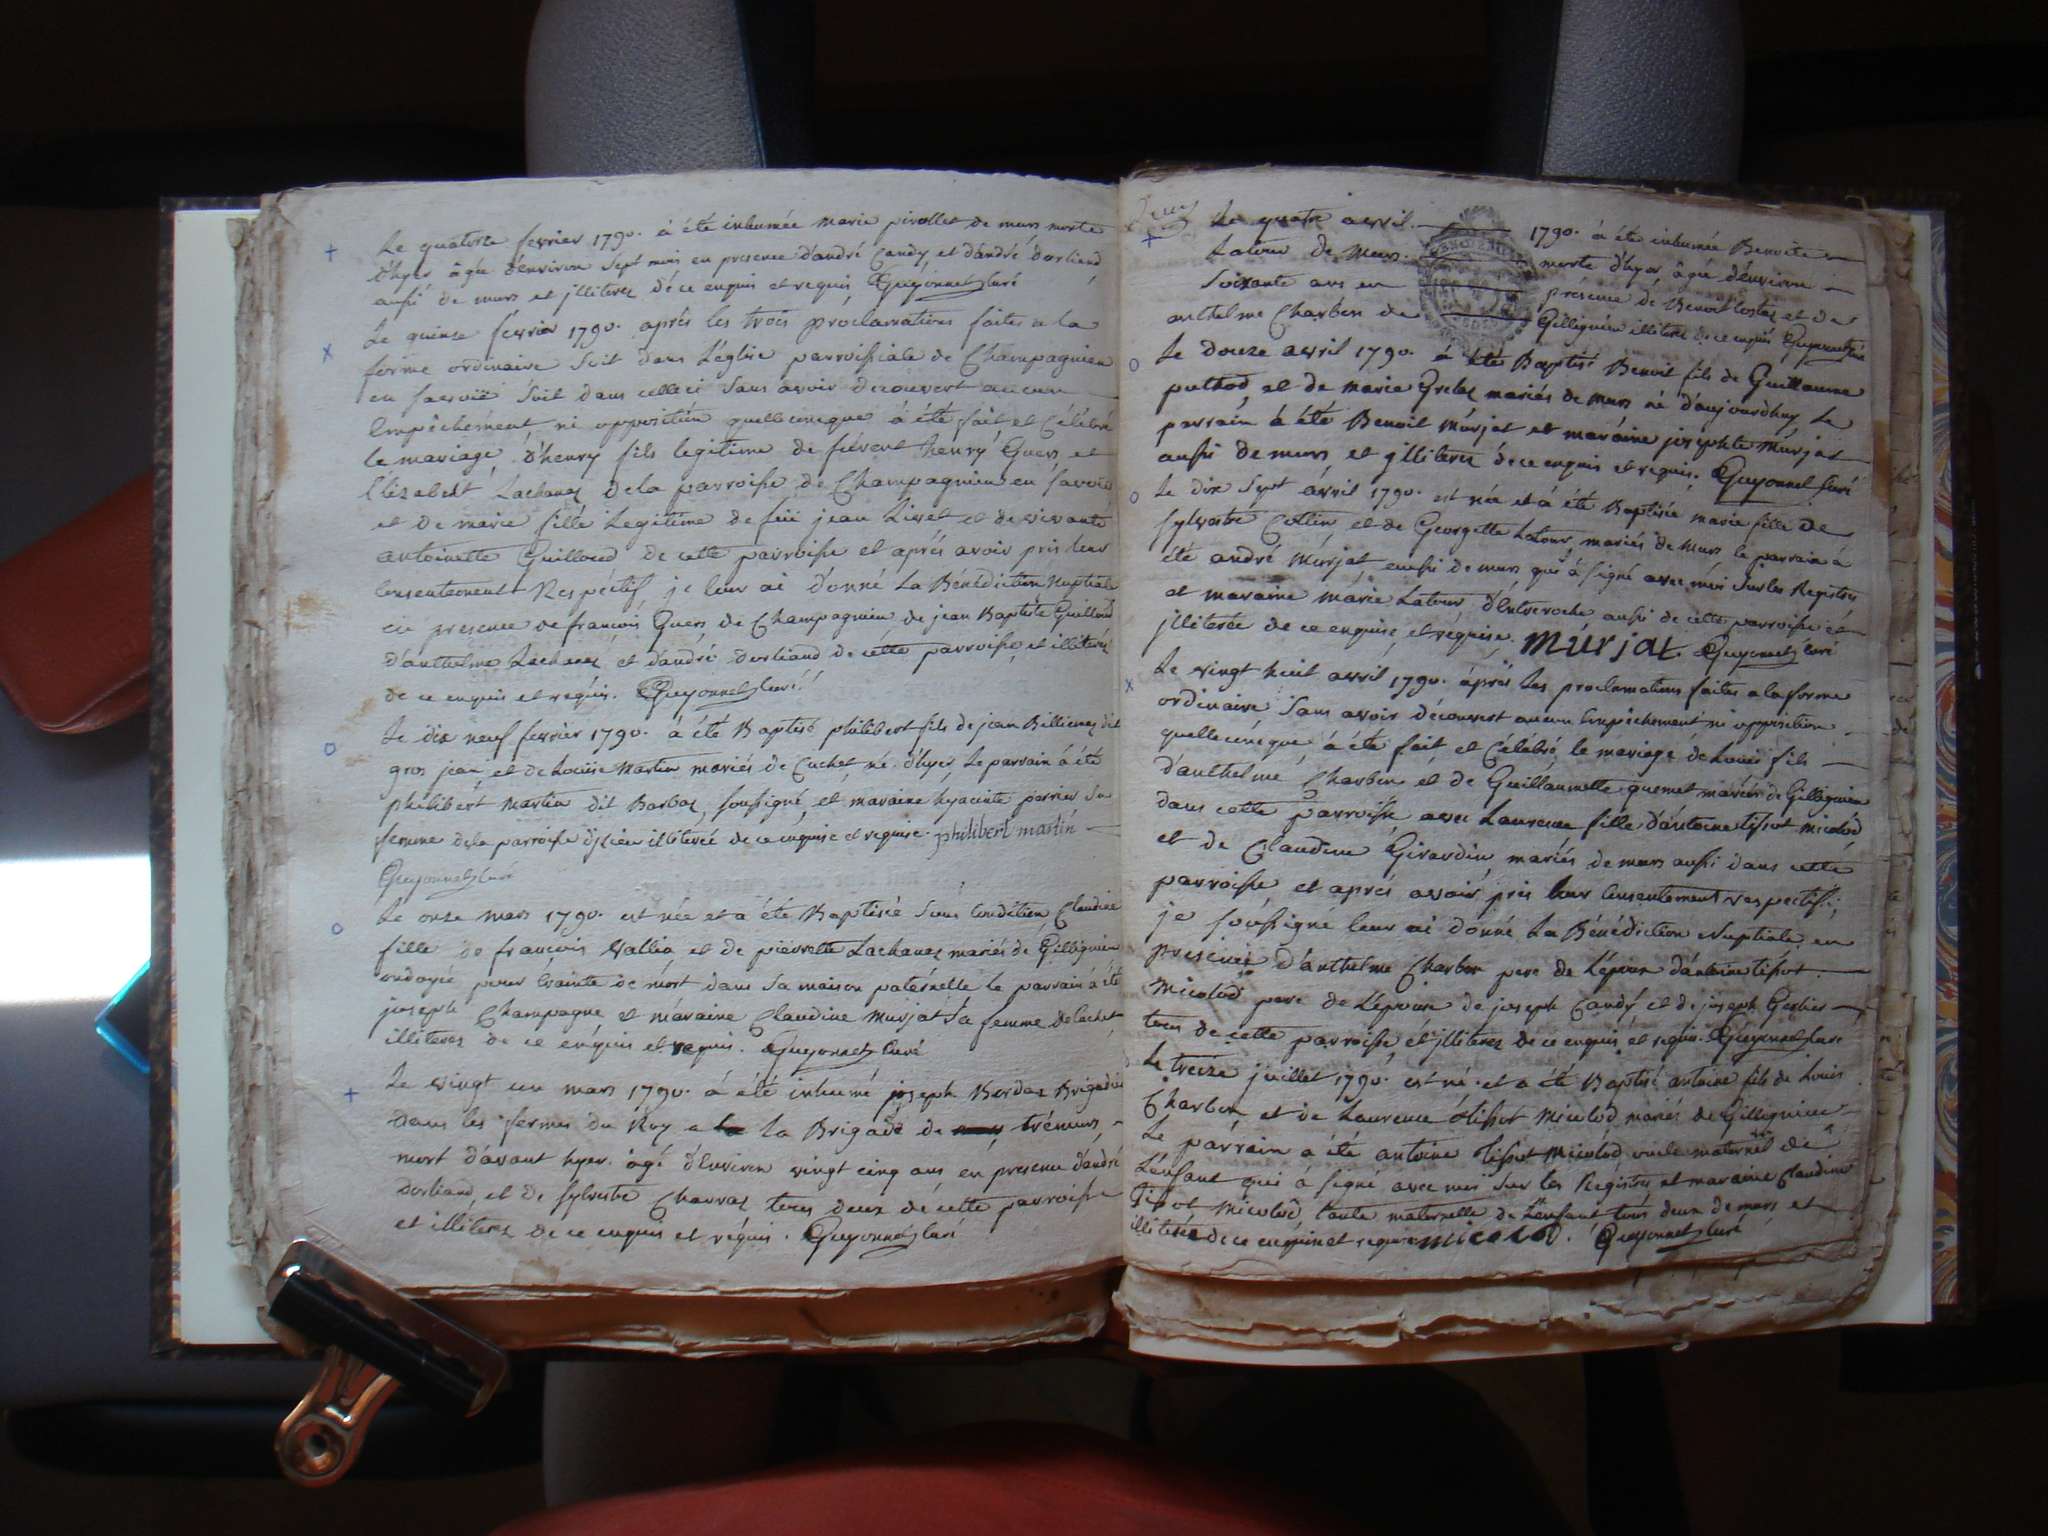 Le quatorze fevrier 1790. à été inhumée marie pirollet de murs morte
d'hyer âgée d'environ sept mois en presence d'andré Candy, et d'andré dorliand
aussi de murs et jlliterez de ce enquis et requis Guyonnet Curé
Le quinze fevrier 1790. aprés les trois proclamations faites a la
forme ordinaire soit dans L'églize parroissiale de Champagnieu
en savoiie soit dans celleci sans avoir decouvert aucun
Empêchement ni opposition quelleconque à été fait et Célébré
le mariage d'henry fils legitime de henry Guers et
d'Elizabeth Lachanaz de la parroisse de Champagnieu en savoie
et de marie fille Legitime de feü jean et de vivante
antoinette Guilloud de cette parroisse et aprés avoir pris leur
Consentement Respectif, je leur ai donné La Bénédiction Nuptiale
en presence de francois Guers de Champagnieu de jean Baptiste Guilloud
d'anthelme Lachanaz et d'andré dorliand de cette parroisse et illiterez
de ce enquis et requis. Guyonnet Curé
Le dix neuf fevrier 1790. à été Baptisé philibert fils de jean Billiemaz dit
gros jean et de Loüise Martin mariés de Cuchet né d'hyer, Le parrain à été
philibert Martin dit Barbaz, soussigné, et maraine hyacinte perrier sa
femme de la parroisse d'jzieu illiterée de ce enquise et requise. philibert martin
Guyonnet Curé
Le onze mars 1790. est née et a été Baptisée sous Condition Claudine
fille de francois Vallin et de pierrette Lachanaz mariés de Gillignieu
ondoyée pour crainte de mort dans sa maison paternelle le parrain à été
joseph Champagne et maraine Claudine Murjat sa femme de Cuchet
illiterez de ce enquis et requis. Guyonnet Curé
Le vingt un mars 1790. à été inhumé joseph Bordaz Brigadier
dans les fermes du Roy a la La Brigade de trémurs
mort d'avant hyer. âgé d'Environ vingt cinq ans en presence d'andré
dorliand, et de sylvestre Charvaz tous deux de cette parroisse
et illiterez de ce enquis et requis. Guyonnet Curé
Le quatre avril 1790. à été inhumée Benoite
Latour de Murs morte d'hyer, âgée d'environ
soixante ans en présence de Benoit Costaz et de
anthelme Charbin de Gillignieu illiterez de ce enquis Guyonnet Curé
Le douze avril 1790. à été Baptisé Benoit fils de Guillaume
puthod, et de Marie Grelaz mariés de Murs né d'aujourd'huy, Le
parrain à été Benoit Murjat et maraine josephte Murjat
aussi de murs et jlliterez de ce enquis et requis. Guyonnet Curé
Le dix sept avril 1790. est née et à été Baptisée marie fille de
sylvestre Collin, et de Georgette Latour, mariés de Murs le parrain à
été andré Murjat aussi de murs qui à signé avec moi sur les Registres
et maraine Marie Latour d'Entreroche aussi de cette parroisse et
jlliterée de ce enquise et requise. Murjat. Guyonnet Curé
Le vingt huit avril 1790. aprés Les proclamations faites a la forme
ordinaire sans avoir découvert aucun Empêchement ni opposition
quelleconque, à été fait et Célébré le mariage de Loüis fils
d'anthelme Charbin et de Guillaumette quemet mariés de Gillignieu
dans cette parroisse avec Laurence fille d'antoine tissot Micolod
et de Claudine Girardin, mariés de murs aussi dans cette
parroisse et aprés avoir pris leur Consentement respectif,
je soussigné leur ai donné La Bénédiction Nuptiale en
presence d'anthelme Charbin pere de L'époux d'antoine tissot
Micolod pere de L'epouse de joseph Candy et de joseph Gerbier
tous de cette parroisse, et jlliterez de ce enquis et requis. Guyonnet Curé
Le treize juillet 1790. est né et a été Baptisé antoine fils de Louis
Charbin et de Laurence tissot Micolod mariés de Gillignieu
Le parrain a été antoine tissot Micolod oncle maternel de
L'enfant qui à signé avec moi sur les Registres et maraine Claudine
tissot Micolod tante maternelle de L'enfant tous deux de murs et
illiterée de ce enquis et requise micolod. Guyonnet Curé